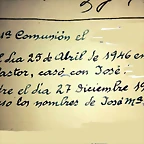 1ª Comunión el
el dia 25 de Abril de 1946 en
Pastor, casó con José
re el dia 27 diciembre 19
los nombres de José Mª